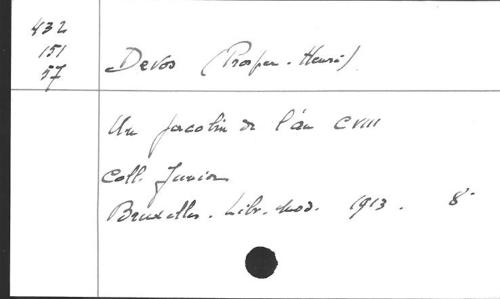 432
151
57
Devos (Prosper-Henri)
Un jacobin de l'an CVIII
Coll. Junior
Bruxelles. Libr. mod. 1913. 8°